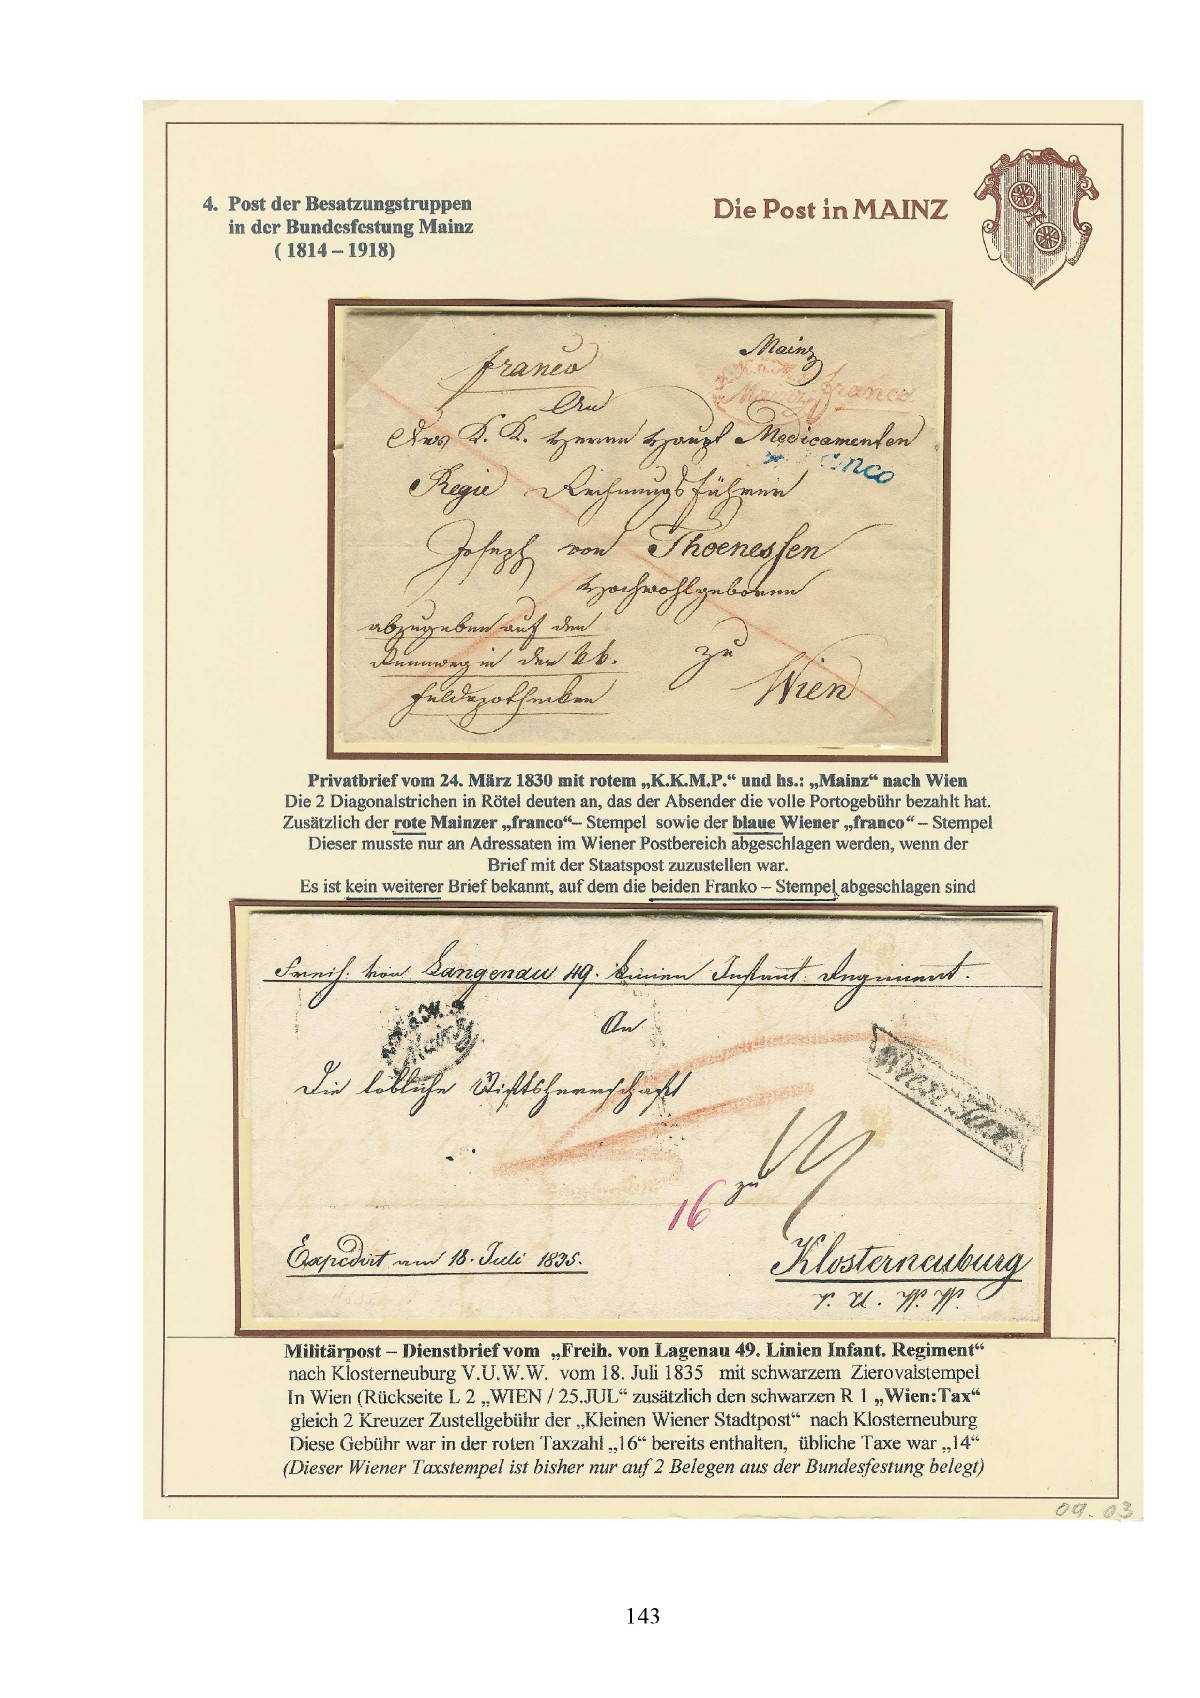 4. Post der Besatzungstruppen
in der Bundesfestung Mainz
( 1814 – 1918)
Die Post in MAINZ
franco
Mainz
Mainz franco
An
K. K. Herrn Haupt Medicamenten
Regie Rechnungsführer
Joseph von Thoenessen
Hochwohlgeboren
abzugeben auf den
Rennweg in der kk.
Feldapotheken
zu
Wien
Privatbrief vom 24. März 1830 mit rotem „K.K.M.P.“ und hs.: „Mainz“ nach Wien
Die 2 Diagonalstrichen in Rötel deuten an, das der Absender die volle Portogebühr bezahlt hat.
Zusätzlich der rote Mainzer „franco“– Stempel sowie der blaue Wiener „franco“ – Stempel
Dieser musste nur an Adressaten im Wiener Postbereich abgeschlagen werden, wenn der
Brief mit der Staatspost zuzustellen war.
Es ist kein weiterer Brief bekannt, auf dem die beiden Franko – Stempel abgeschlagen sind
Freih. von Langenau 49. Linien Infant. Regiment.
Mainz
An
Die löbliche Stiftsherrschaft
Wien Tax
16
zu
Expedirt am 18. Juli 1835.
Klosterneuburg
V. U. W. W.
Militärpost – Dienstbrief vom „Freih. von Lagenau 49. Linien Infant. Regiment“
nach Klosterneuburg V.U.W.W. vom 18. Juli 1835 mit schwarzem Zierovalstempel
In Wien (Rückseite L 2 „WIEN / 25.JUL“ zusätzlich den schwarzen R 1 „Wien:Tax“
gleich 2 Kreuzer Zustellgebühr der „Kleinen Wiener Stadtpost“ nach Klosterneuburg
Diese Gebühr war in der roten Taxzahl „16“ bereits enthalten, übliche Taxe war „14“
(Dieser Wiener Taxstempel ist bisher nur auf 2 Belegen aus der Bundesfestung belegt)
09. 03
143